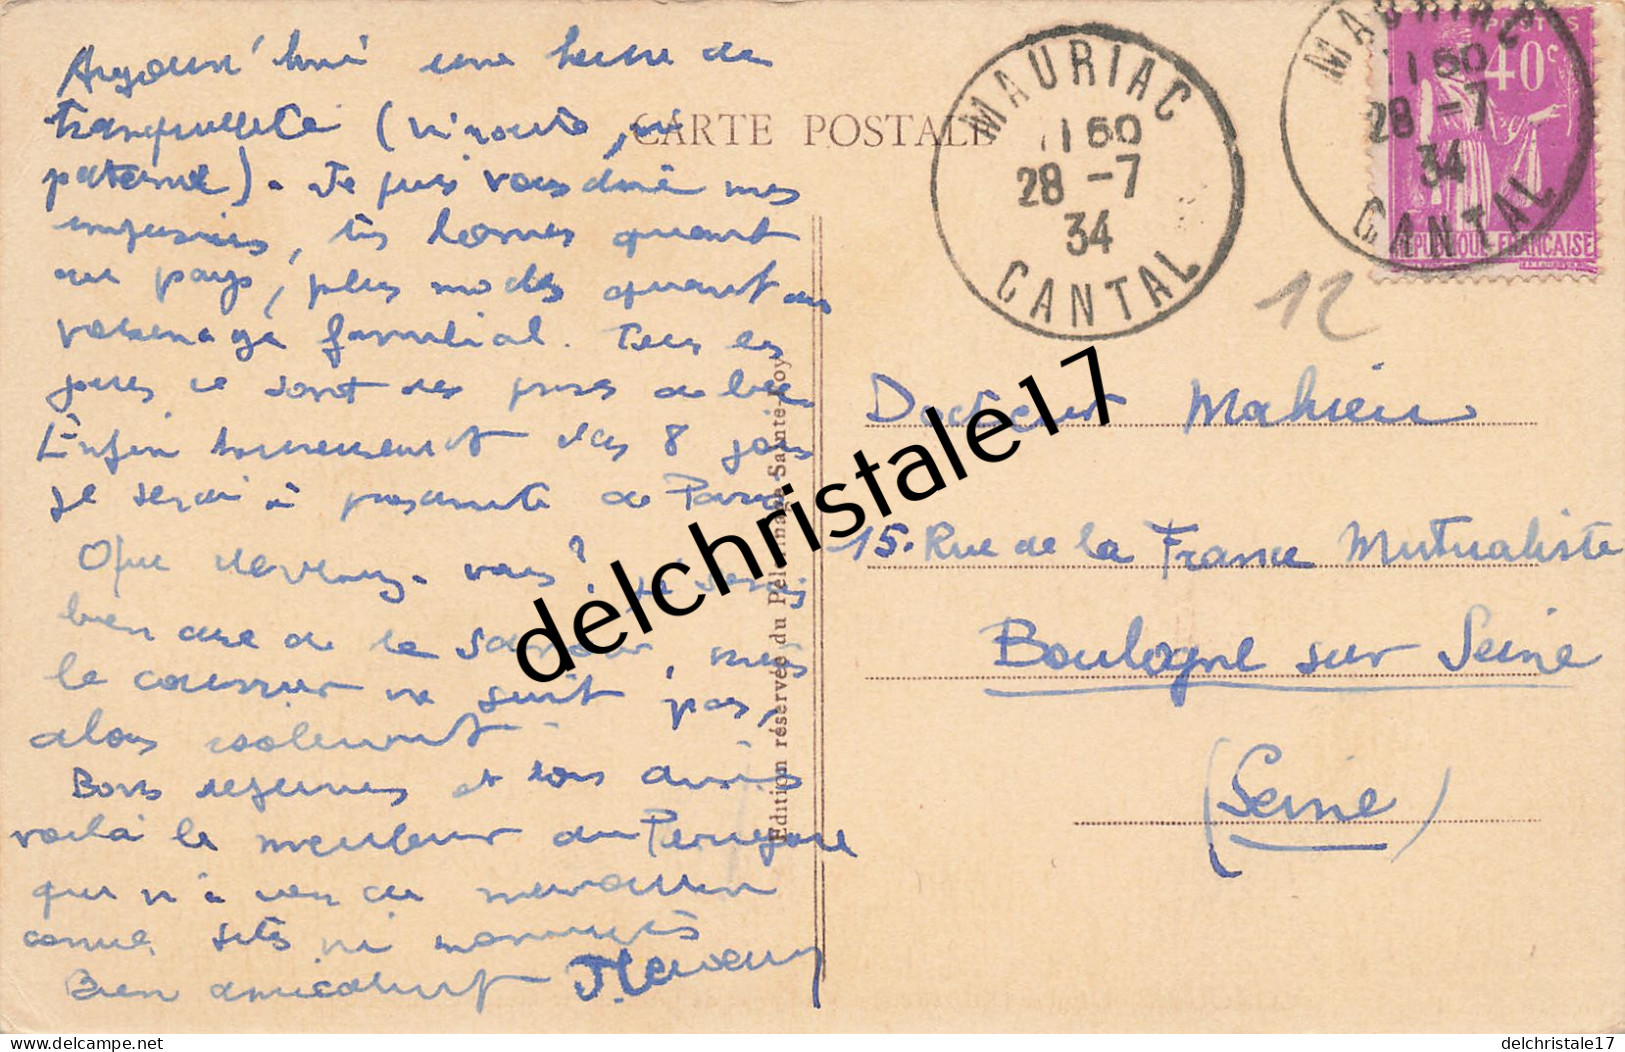 CARTE POSTALE
MAURIAC
1150
28 -7
34
CANTAL
MAURIAC
1150
28 -7
34
CANTAL
POSTES
40c
REPUBLIQUE FRANÇAISE
12
Aujourd'hui une heure de
tranquillité (ni route, ni
patience). Je puis vous dire mes
impressions, très bonnes quant
au pays, plus quant au
familial. Tous les
jours ce sont des
Enfin heureusement dans 8 jours
je serai à proximité de Paris
Que devenez-vous? Je serais
bien aise de le savoir, mais
le courrier ne suit pas,
alors isolement
Bons et bons
voilà le meilleur du Périgord
qui n'a rien de merveilleux
comme sites ni monuments
Bien amicalement
Docteur Mahieu
15. Rue de la France Mutualiste
Boulogne sur Seine
(Seine)
Edition réservée du Pèlerinage Sainte-Foy
delchristale17
delcampe.net
delchristale17